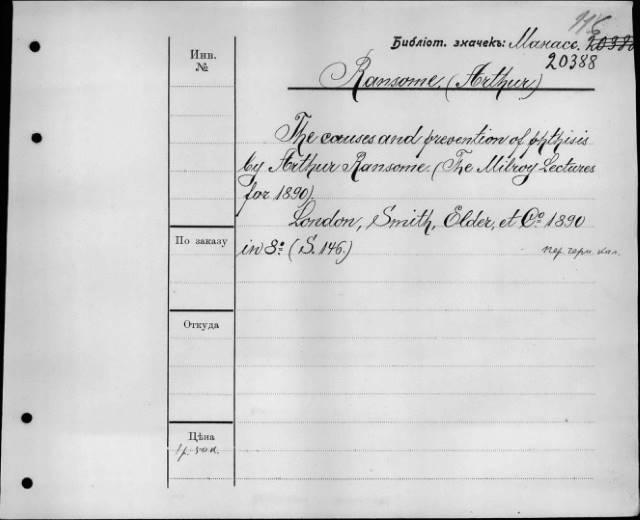 Библіот. значекъ: Манасс. 20388
20388
Инв.
№
Ransome. (Arthur)
The causes and prevention of phthisis
by Arthur Ransome. (The Milroy Lectures
for 1890)
London, Smith, Elder, et Cº 1890
in 8º (S. 146.)
пер. черн. кол.
По заказу
Откуда
Цѣна
1 р. 50 к.